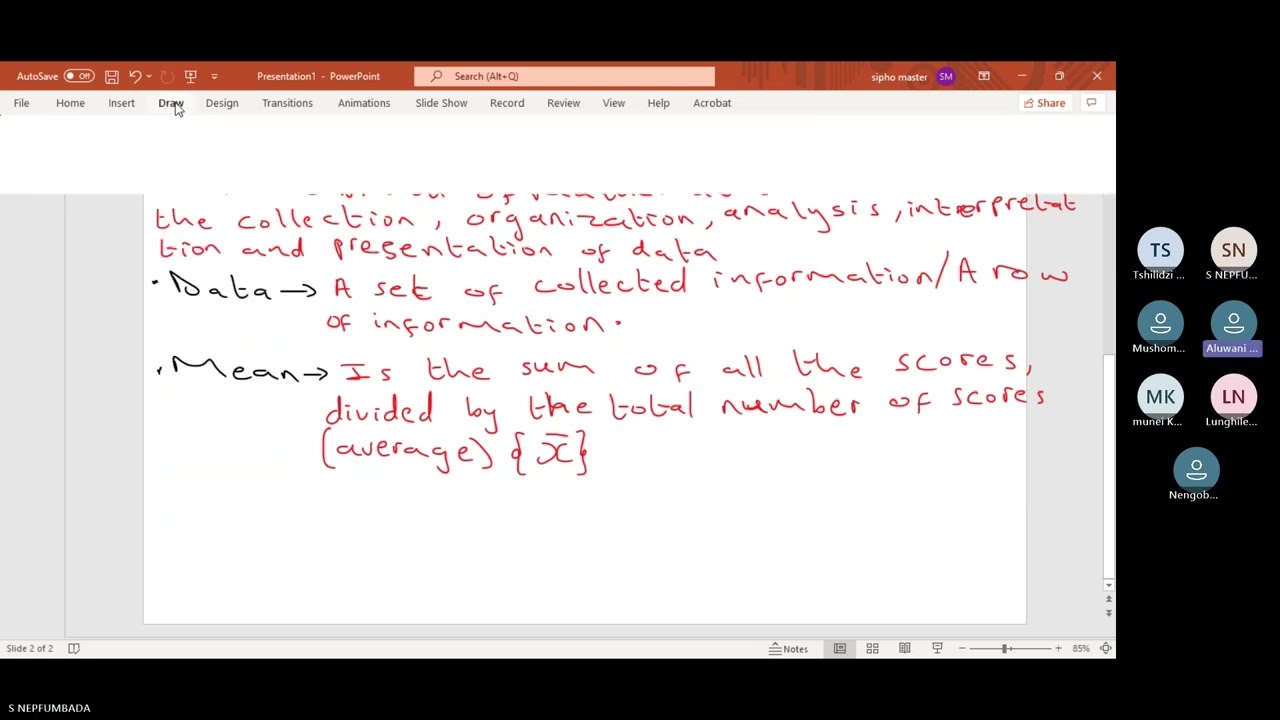 AutoSave Off Presentation1 - PowerPoint Search (Alt+Q) sipho master SM
File Home Insert Draw Design Transitions Animations Slide Show Record Review View Help Acrobat Share
the collection, organization, analysis, interpretat
tion and presentation of data
• Data → A set of collected information/A row
of information.
• Mean → Is the sum of all the scores,
divided by the total number of scores
(average) {x̄}
TS SN
Tshilidzi ... S NEPFU...
Mushom... Aluwani ...
MK LN
munei K... Lunghile...
Nengob...
Slide 2 of 2 Notes 85%
S NEPFUMBADA